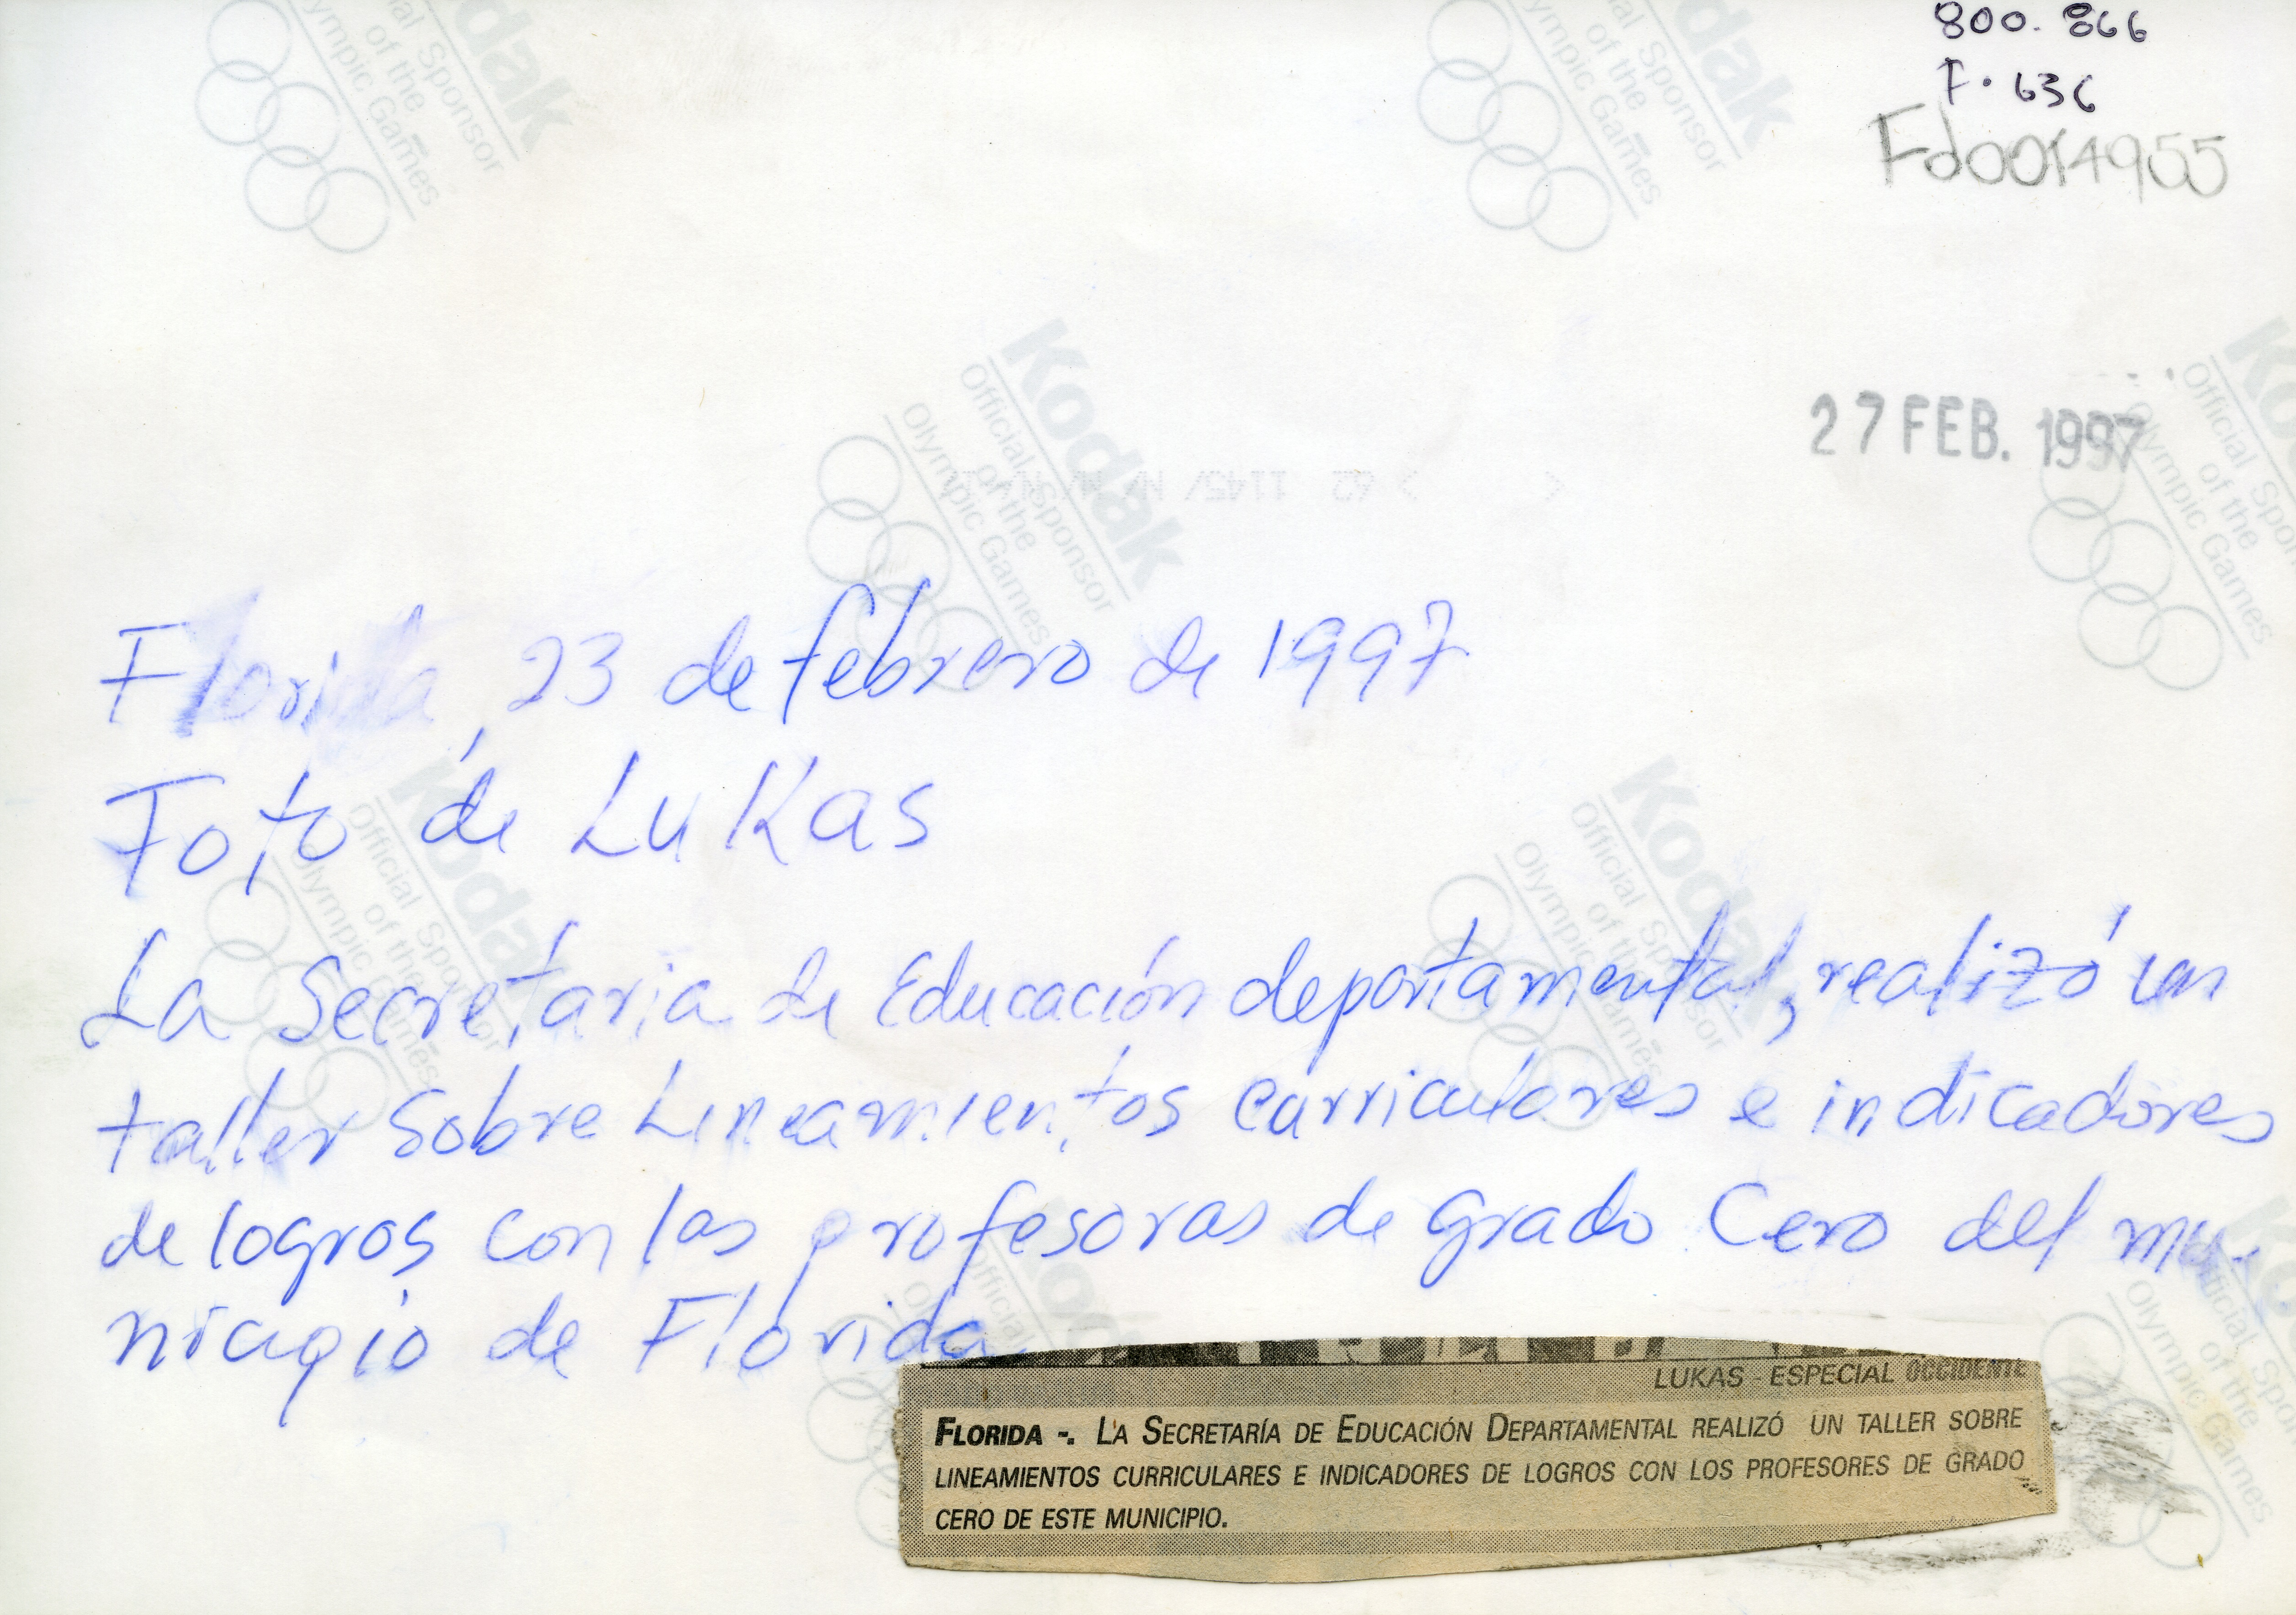 800. 866
F. 636
Fd0014955
27 FEB. 1997
Kodak
Official Sponsor
of the
Olympic Games
Florida, 23 de febrero de 1997
Foto de Lukas
La Secretaria de Educación departamental, realizó un
taller sobre Lineamientos curriculares e indicadores
de logros con las profesoras de grado Cero del mu-
nicipio de Florida
LUKAS - ESPECIAL OCCIDENTE
FLORIDA -. LA SECRETARÍA DE EDUCACIÓN DEPARTAMENTAL REALIZÓ UN TALLER SOBRE
LINEAMIENTOS CURRICULARES E INDICADORES DE LOGROS CON LOS PROFESORES DE GRADO
CERO DE ESTE MUNICIPIO.